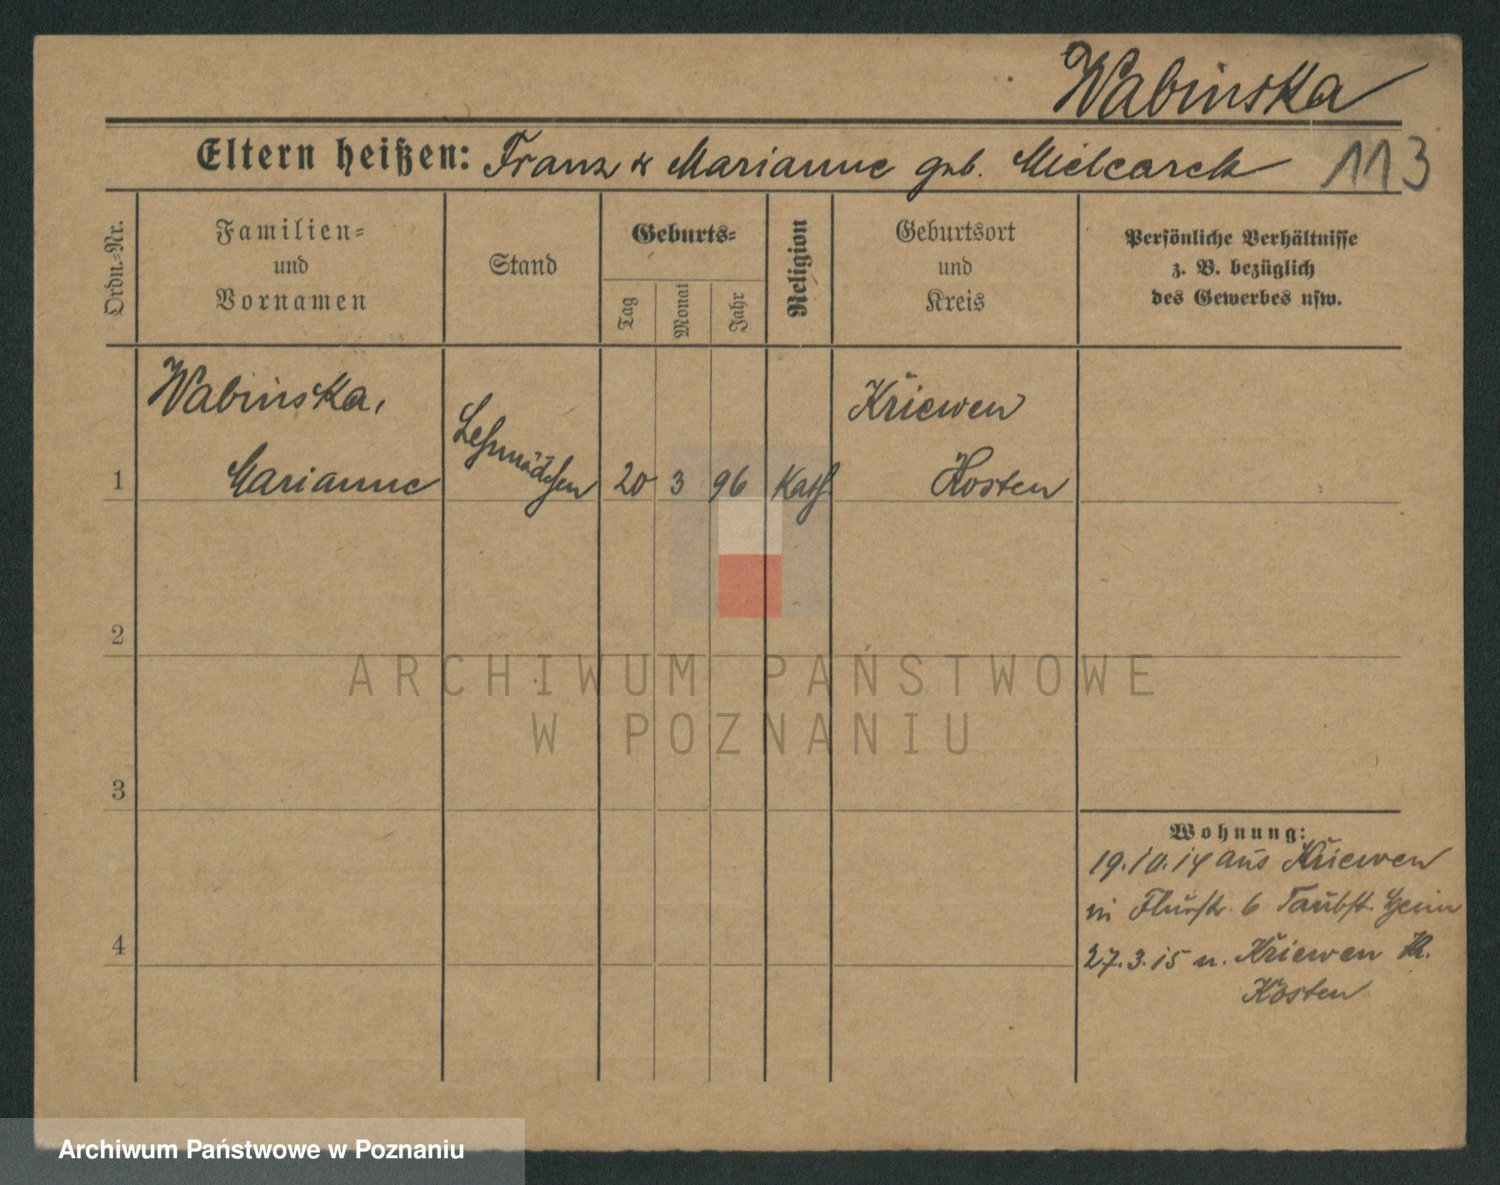 Wabinska
Eltern heißen: Franz & Marianne geb. Mielcarek 113
Ordn.-Nr.
Familien-
und
Vornamen
Stand
Geburts-
Tag
Monat
Jahr
Religion
Geburtsort
und
Kreis
Persönliche Verhältnisse
z. B. bezüglich
des Gewerbes usw.
Wabinska,
1 Marianne
Lehrmädchen
20 3 96 Kath.
Kriewen
Kosten
2
3
4
Wohnung:
19.10.14 aus Kriewen
in Flurstr. 6 Taubst. Heim
27.3.15 n. Kriewen Kr.
Kosten
ARCHIWUM PAŃSTWOWE
W POZNANIU
Archiwum Państwowe w Poznaniu